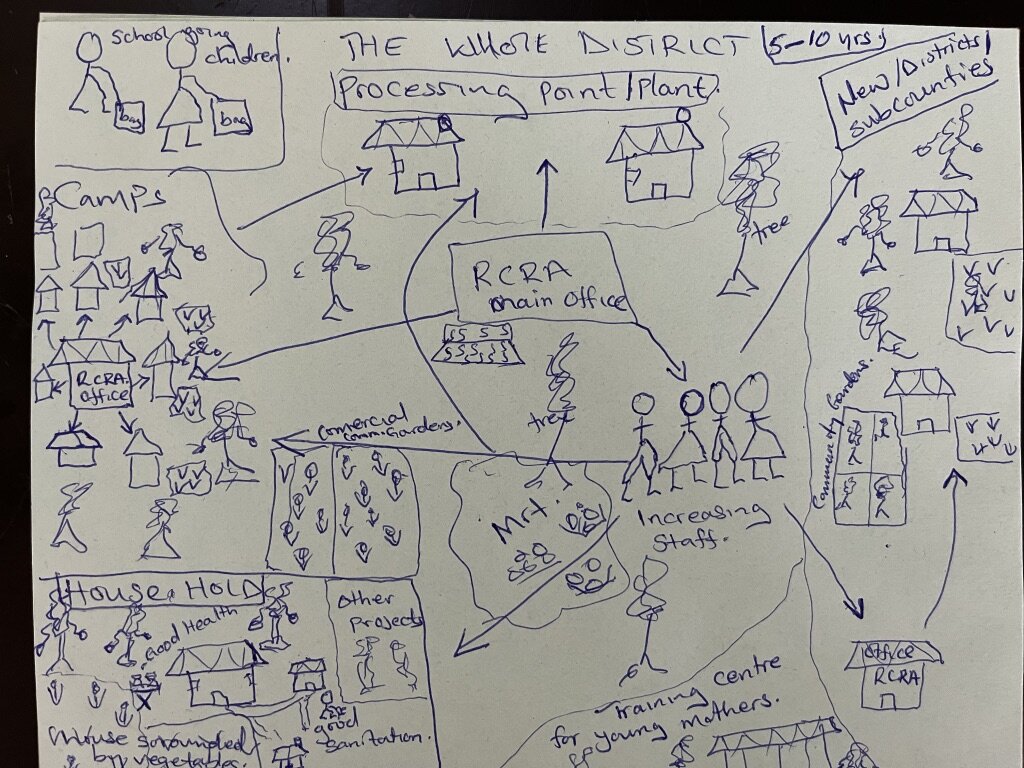 school going
children.
bag
bag
THE WHOLE DISTRICT
5-10 yrs.
Processing point/Plant.
New/Districts/
subcounties
Camps
tree
RCRA
main office
RCRA.
office
tree
comercial
comm. Gardens.
Community Gardens.
Mrt.
Increasing
staff.
HOUSE HOLDS
Good Health
other
projects
office
RCRA
good
sanitation.
House sorounded
by vegetables.
training centre
for young mothers.